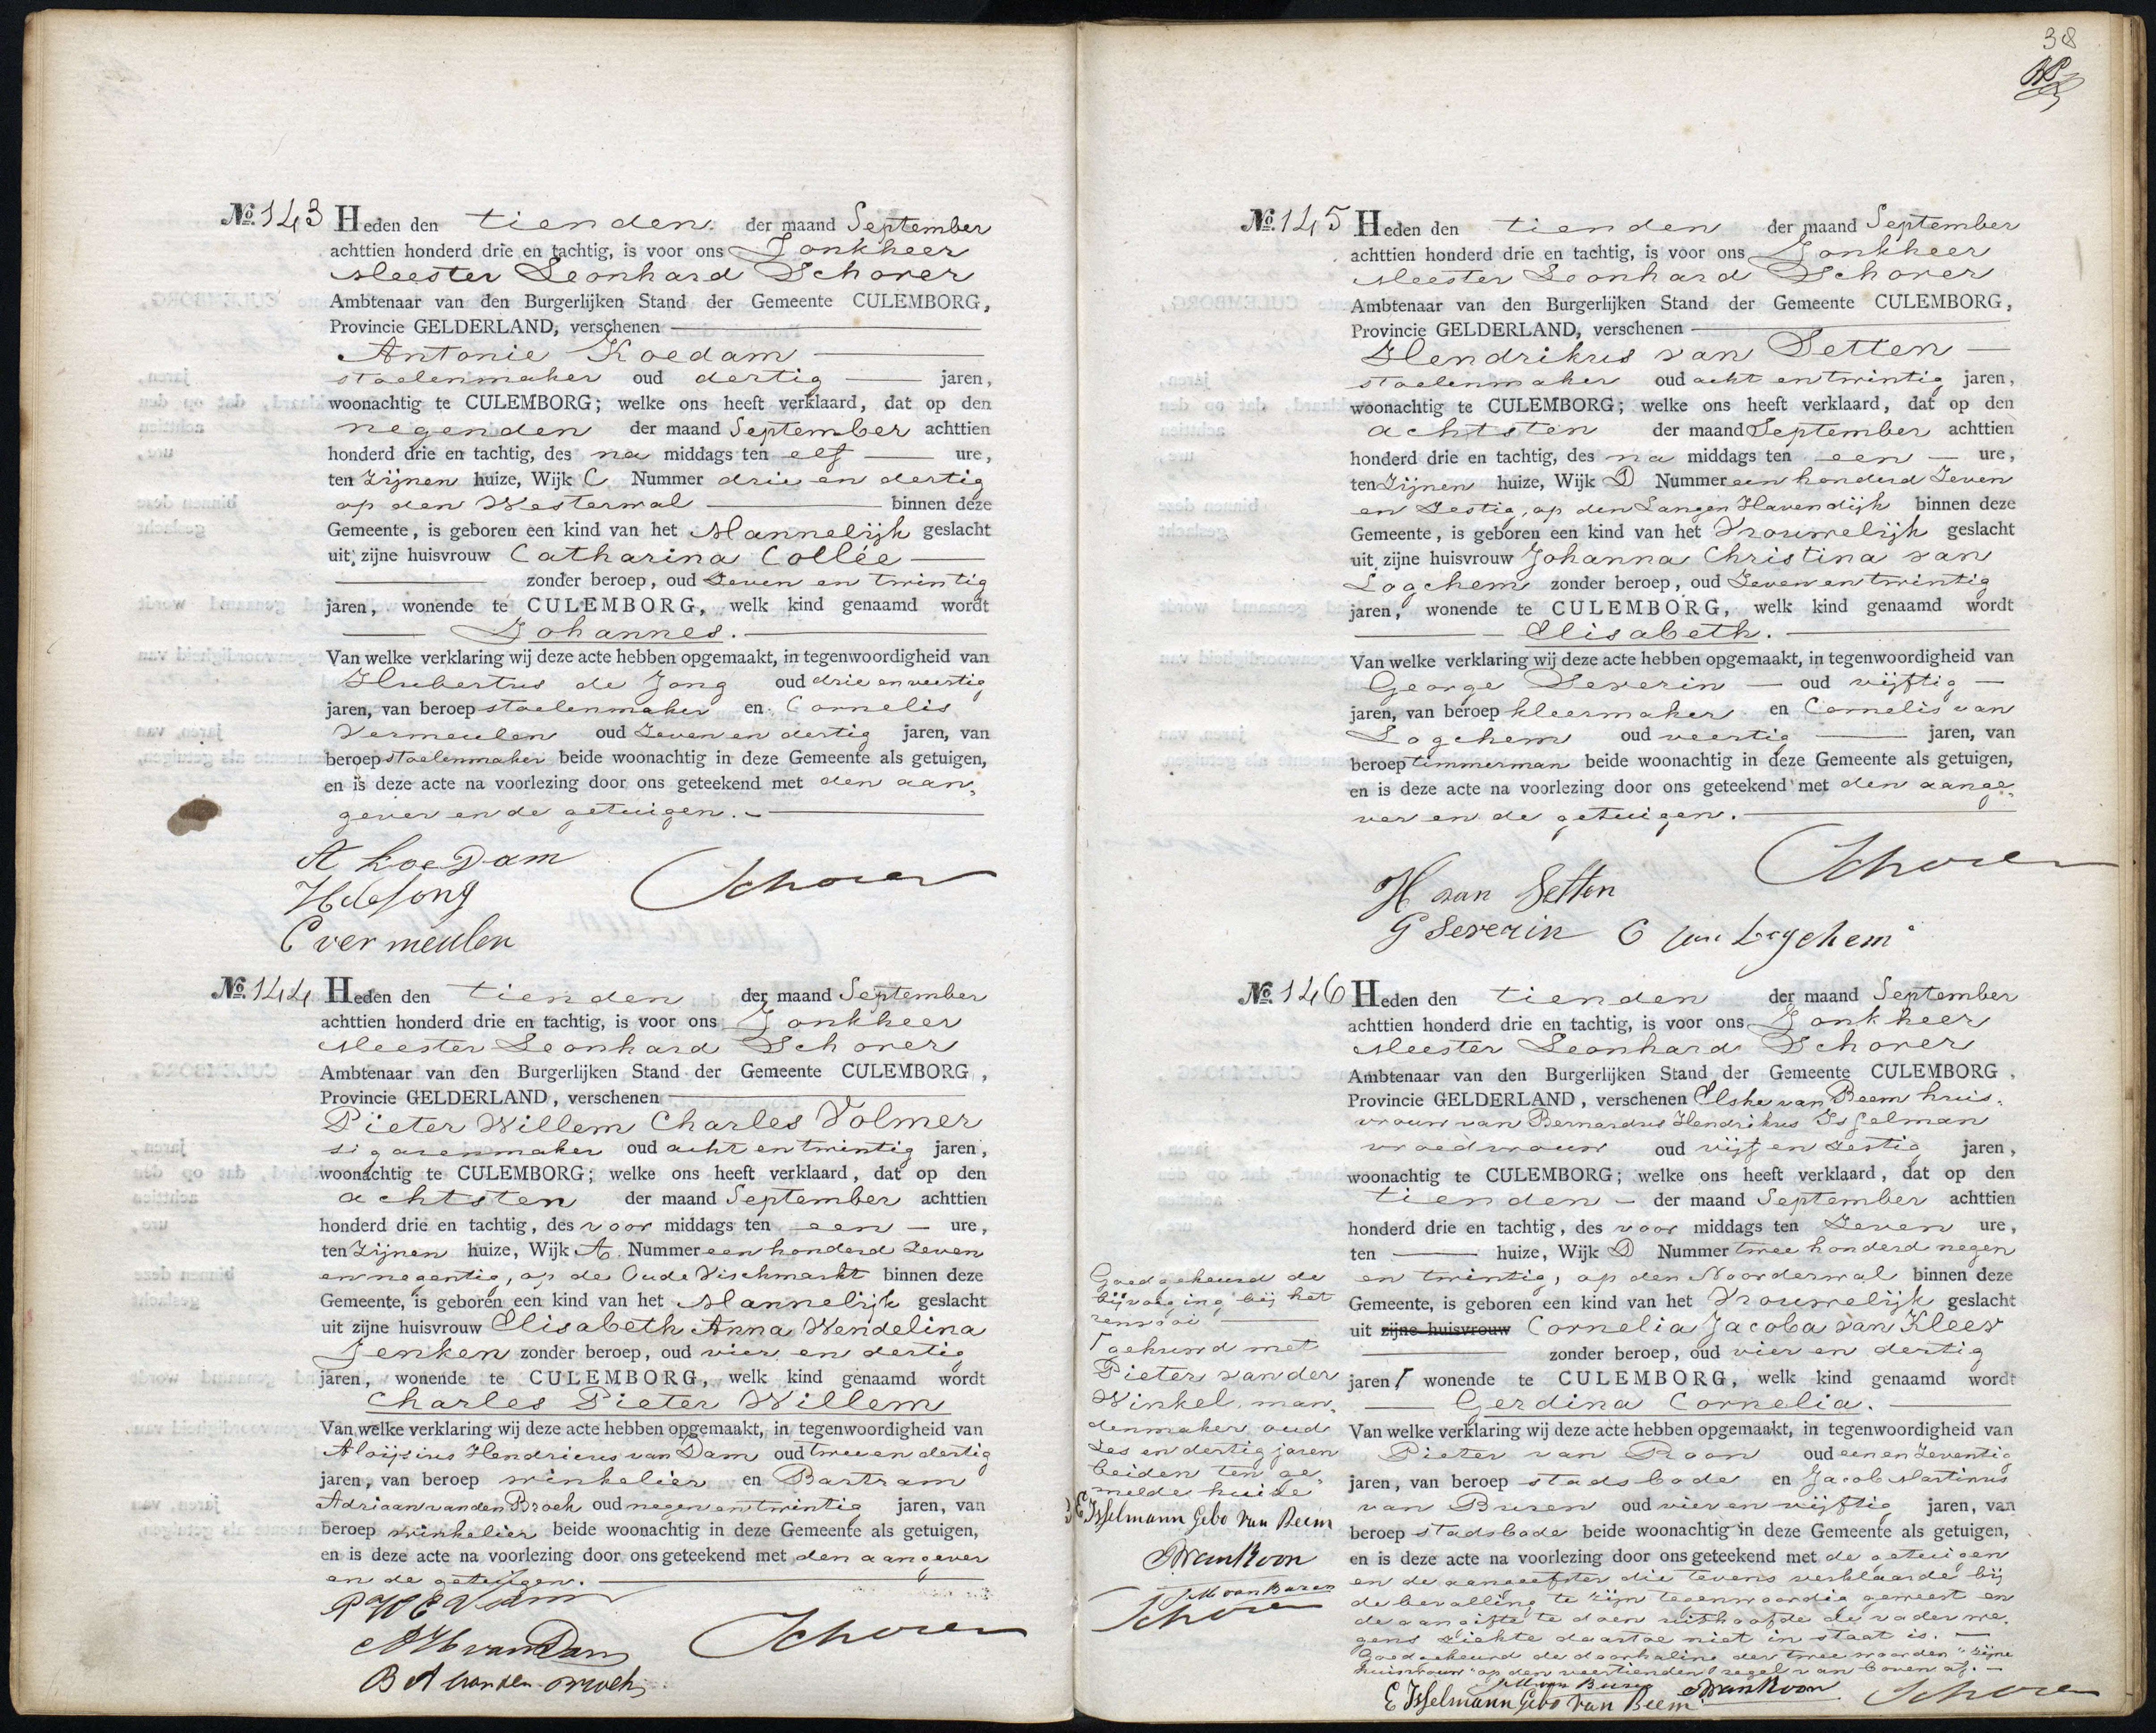 № 143 Heden den tienden der maand September
achttien honderd drie en tachtig, is voor ons Jonkheer
Meester Leonhard Schorer
Ambtenaar van den Burgerlijken Stand der Gemeente CULEMBORG,
Provincie GELDERLAND, verschenen
Antonie Koedam
stoelenmaker oud dertig jaren,
woonachtig te CULEMBORG; welke ons heeft verklaard, dat op den
negenden der maand September achttien
honderd drie en tachtig, des na middags ten elf ure,
ten zijnen huize, Wijk C Nummer drie en dertig
op den Westerwal binnen deze
Gemeente, is geboren een kind van het Mannelijk geslacht
uit zijne huisvrouw Catharina Collée
zonder beroep, oud zeven en twintig
jaren, wonende te CULEMBORG, welk kind genaamd wordt
Johannes.
Van welke verklaring wij deze acte hebben opgemaakt, in tegenwoordigheid van
Hubertus de Jong oud drie en veertig
jaren, van beroep stoelenmaker en Cornelis
Vermeulen oud zeven en dertig jaren, van
beroep stoelenmaker beide woonachtig in deze Gemeente als getuigen,
en is deze acte na voorlezing door ons geteekend met den aan,
gever en de getuigen.
A KoeDam
H de Jong Schorer
C vermeulen
№ 144 Heden den tienden der maand September
achttien honderd drie en tachtig, is voor ons Jonkheer
Meester Leonhard Schorer
Ambtenaar van den Burgerlijken Stand der Gemeente CULEMBORG,
Provincie GELDERLAND, verschenen
Pieter Willem Charles Volmer
sigarenmaker oud acht en twintig jaren,
woonachtig te CULEMBORG; welke ons heeft verklaard, dat op den
achtsten der maand September achttien
honderd drie en tachtig, des voor middags ten een ure,
ten zijnen huize, Wijk A Nummer een honderd zeven
en negentig, op de Oude Vischmarkt binnen deze
Gemeente, is geboren een kind van het Mannelijk geslacht
uit zijne huisvrouw Elisabeth Anna Wendelina
Jenken zonder beroep, oud vier en dertig
jaren, wonende te CULEMBORG, welk kind genaamd wordt
Charles Pieter Willem
Van welke verklaring wij deze acte hebben opgemaakt, in tegenwoordigheid van
Aloijsius Hendricus van Dam oud twee en dertig
jaren, van beroep winkelier en Bartram
Adriaan van den Broek oud negen en twintig jaren, van
beroep winkelier beide woonachtig in deze Gemeente als getuigen,
en is deze acte na voorlezing door ons geteekend met den aangever
en de getuigen.
A H van Dam Schorer
B A van den Broek
38
№ 145 Heden den tienden der maand September
achttien honderd drie en tachtig, is voor ons Jonkheer
Meester Leonhard Schorer
Ambtenaar van den Burgerlijken Stand der Gemeente CULEMBORG,
Provincie GELDERLAND, verschenen
Hendrikus van Setten
stoelenmaker oud acht en twintig jaren,
woonachtig te CULEMBORG; welke ons heeft verklaard, dat op den
achtsten der maand September achttien
honderd drie en tachtig, des na middags ten een ure,
ten zijnen huize, Wijk D Nummer een honderd zeven
en zestig, op den Langen Havendijk binnen deze
Gemeente, is geboren een kind van het Vrouwelijk geslacht
uit zijne huisvrouw Johanna Christina van
Logchem zonder beroep, oud zeven en twintig
jaren, wonende te CULEMBORG, welk kind genaamd wordt
Elisabeth.
Van welke verklaring wij deze acte hebben opgemaakt, in tegenwoordigheid van
George Severin oud vijftig
jaren, van beroep kleermaker en Cornelis van
Logchem oud veertig jaren, van
beroep timmerman beide woonachtig in deze Gemeente als getuigen,
en is deze acte na voorlezing door ons geteekend met den aange,
ver en de getuigen.
Schorer
H van Setten
G Severin C van Logchem
№ 146 Heden den tienden der maand September
achttien honderd drie en tachtig, is voor ons Jonkheer
Meester Leonhard Schorer
Ambtenaar van den Burgerlijken Stand der Gemeente CULEMBORG,
Provincie GELDERLAND, verschenen Elske van Beem huis,
vrouw van Bernardus Hendrikus Isselman
vroedvrouw oud vijf en zestig jaren,
woonachtig te CULEMBORG; welke ons heeft verklaard, dat op den
tienden der maand September achttien
honderd drie en tachtig, des voor middags ten zeven ure,
ten huize, Wijk D Nummer twee honderd negen
en twintig, op den Noorderwal binnen deze
Gemeente, is geboren een kind van het Vrouwelijk geslacht
uit zijne huisvrouw Cornelia Jacoba van Kleef
zonder beroep, oud vier en dertig
jaren Γ wonende te CULEMBORG, welk kind genaamd wordt
Gerdina Cornelia.
Van welke verklaring wij deze acte hebben opgemaakt, in tegenwoordigheid van
Pieter van Roon oud een en zeventig
jaren, van beroep stadsbode en Jacob Martinus
van Buren oud vier en vijftig jaren, van
beroep stadsbode beide woonachtig in deze Gemeente als getuigen,
en is deze acte na voorlezing door ons geteekend met de getuigen
en de aangeefster die tevens verklaarde bij
de bevalling te zijn tegenwoordig geweest en
de aangifte te doen uithoofde de vader we,
gens ziekte daartoe niet in staat is.
Goedgekeurd de doorhaling der twee woorden "zijne
huisvrouw" op den veertienden regel van boven af.
J M van Buren P van Roon Schorer
E Isselmann Gebo van Beem
Goedgekeurd de
bijvoeging bij het
renvooi
Γ gehuwd met
Pieter van der
Winkel, man,
denmaker, oud
zes en dertig jaren
beiden ten ge,
melde huize
E Isselmann Gebo van Beem
P van Roon
J M van Buren
Schorer